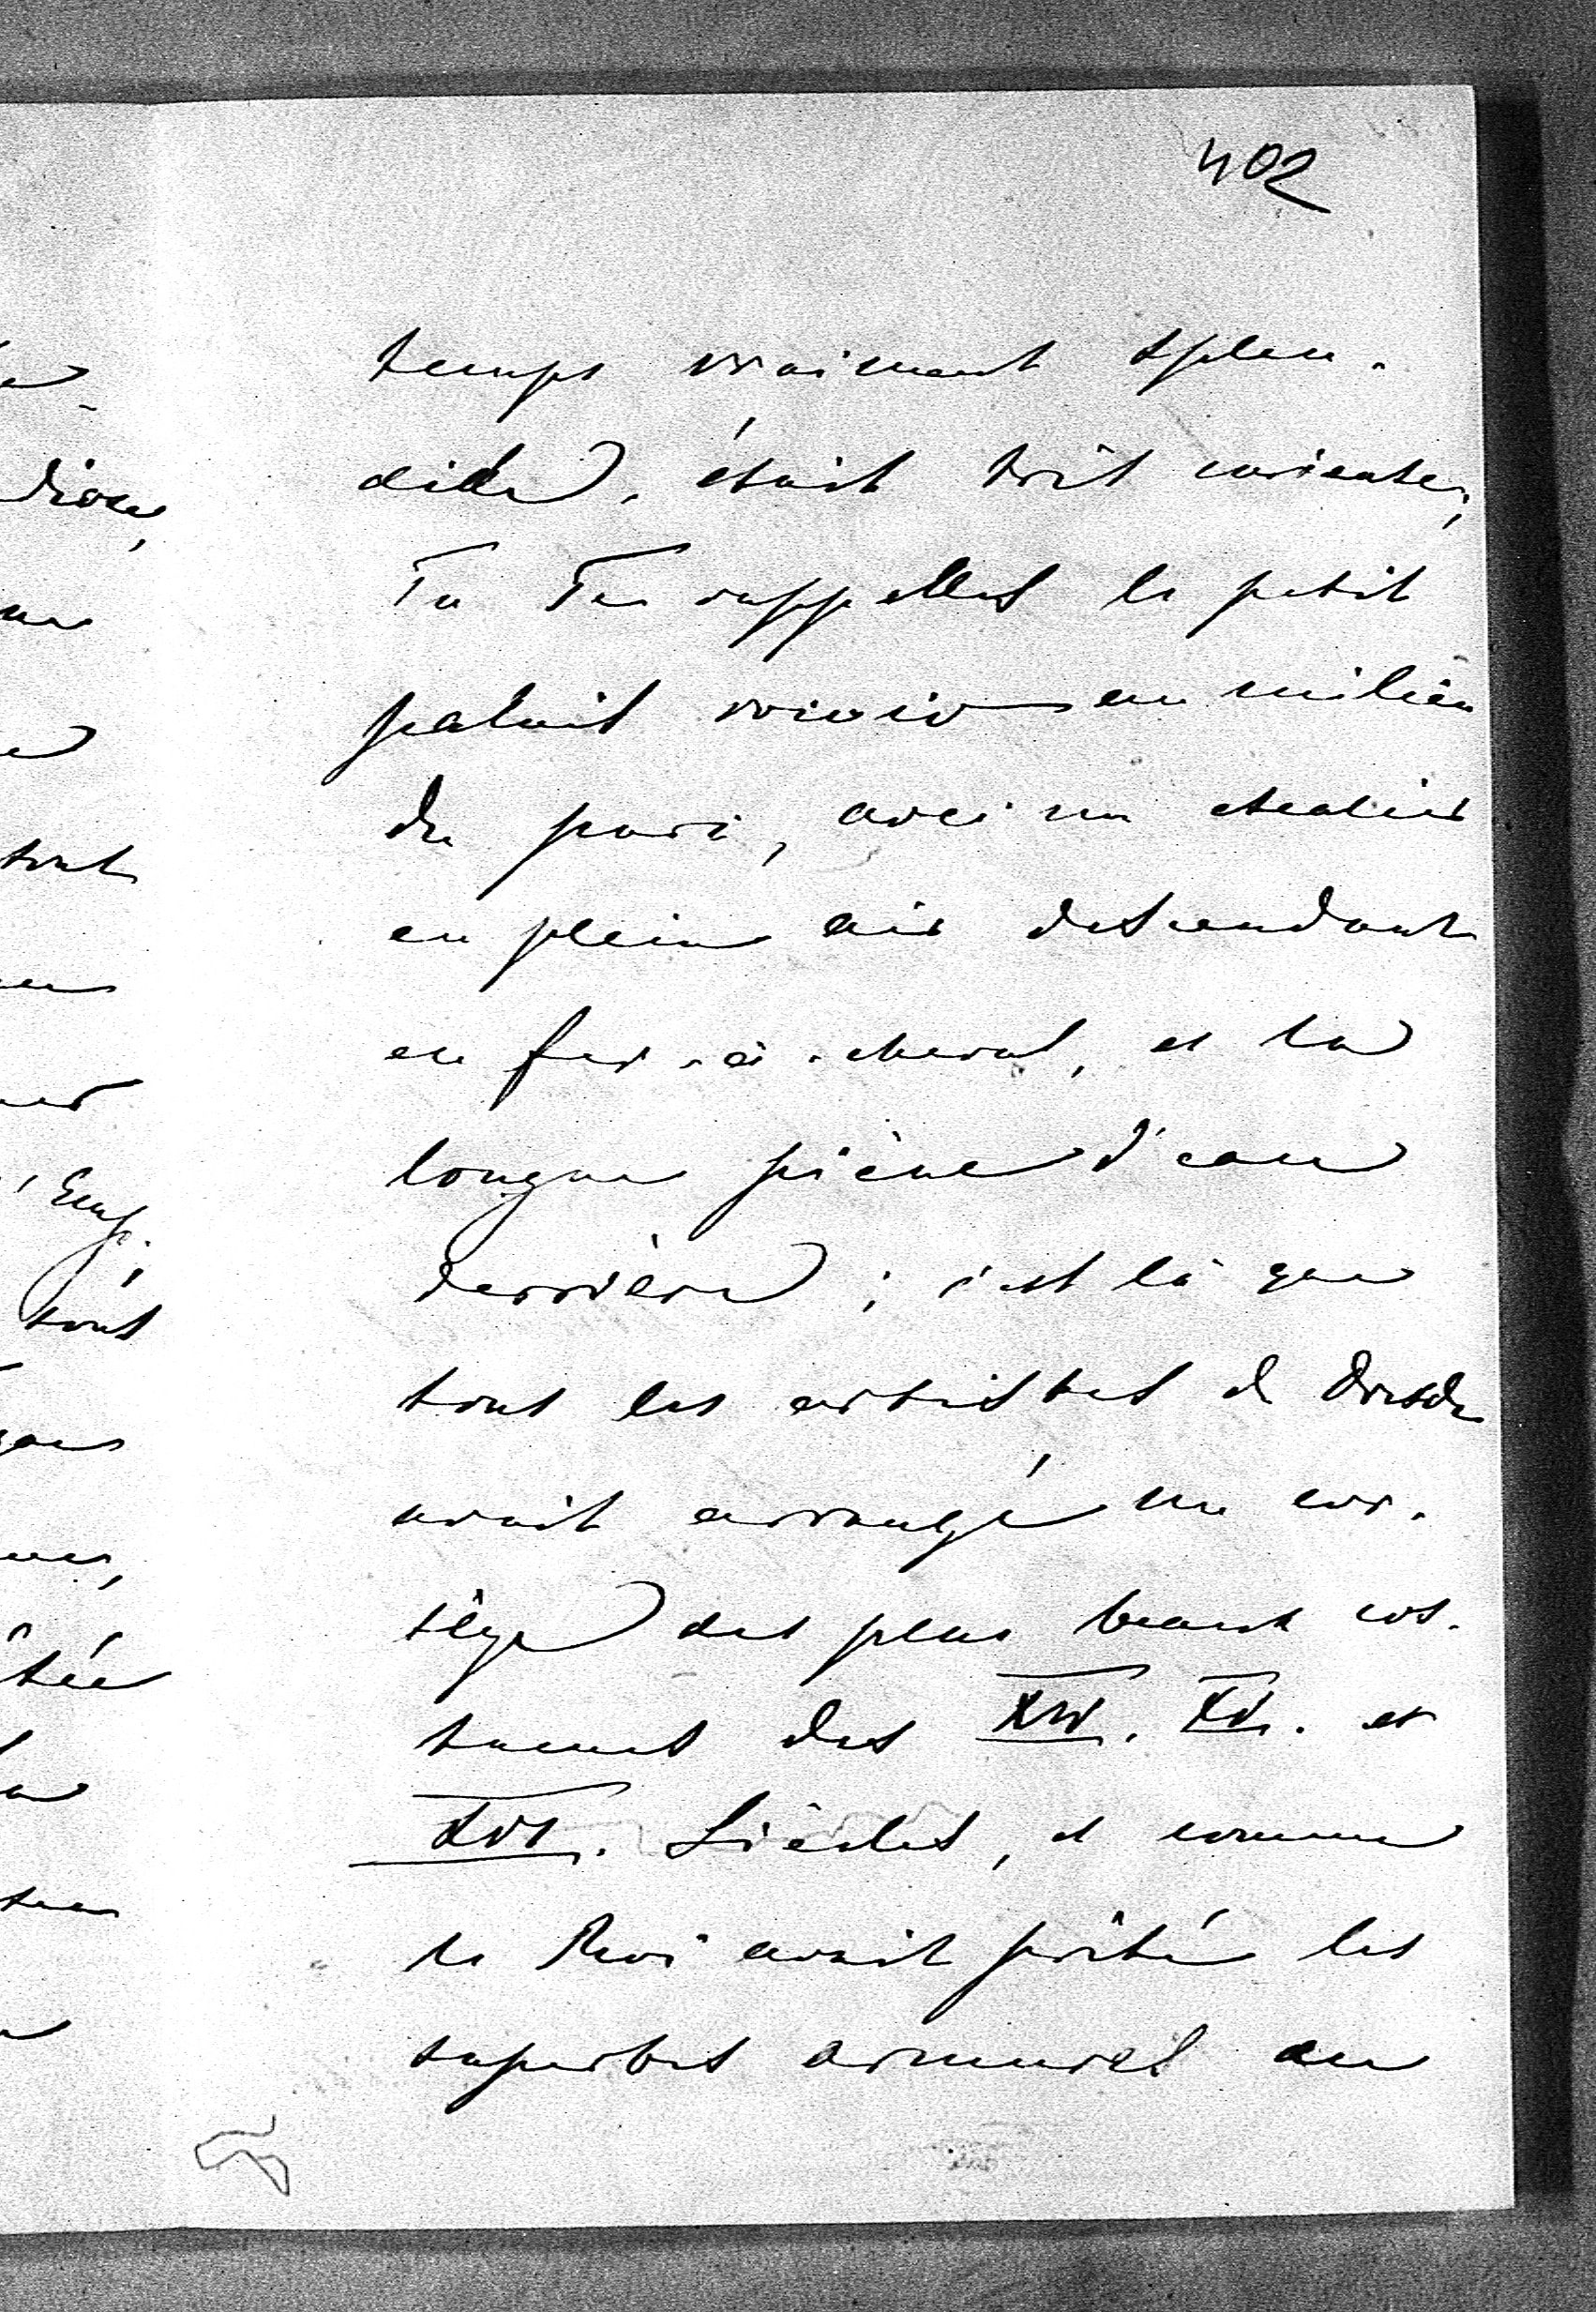 402
temps vraiment splen-
dide, était très
Tu Te rappelles le petit
palais au milieu
du parc, avec un escalier
en plein air descendant
en fer-à-cheval, et la
longue pièce d'eau
derrière; c'est là que
tous les artistes de Dresde
avait arrangé un cor-
tège des plus beaux cos-
tumes des XIV. XV. et
XVI. Siècles, et comme
le Roi avait prêté les
superbes armures du